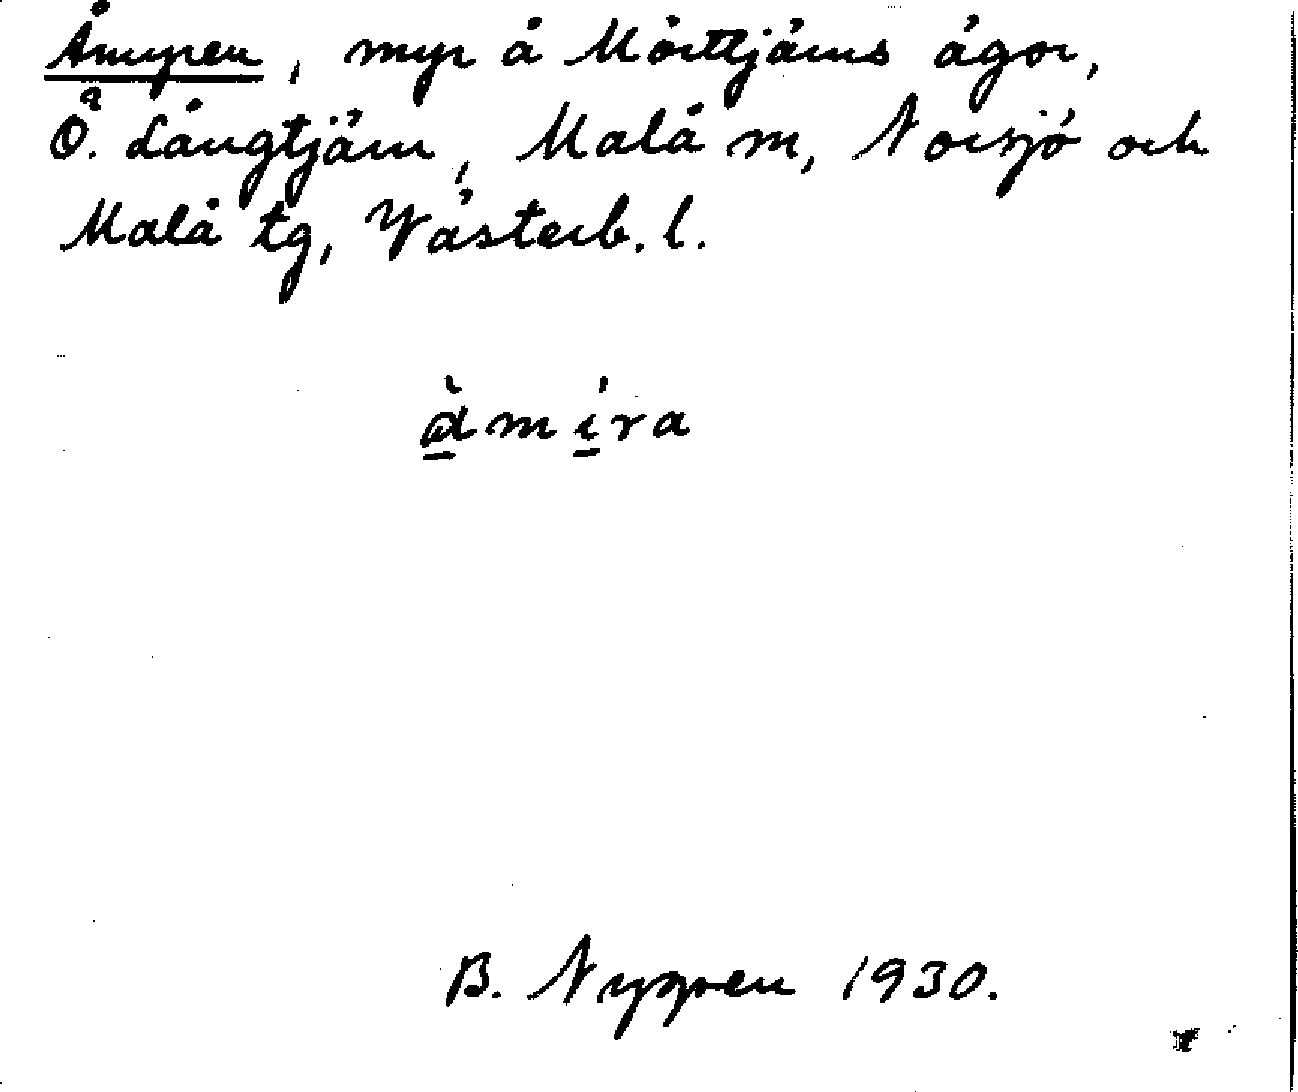 Åmyren, myr å Mörttjärns ägor,
Ö. Långtjärn, Malå sn, Norsjö och
Malå tg, Västerb. l.
àmíra
B. Nygren 1930.